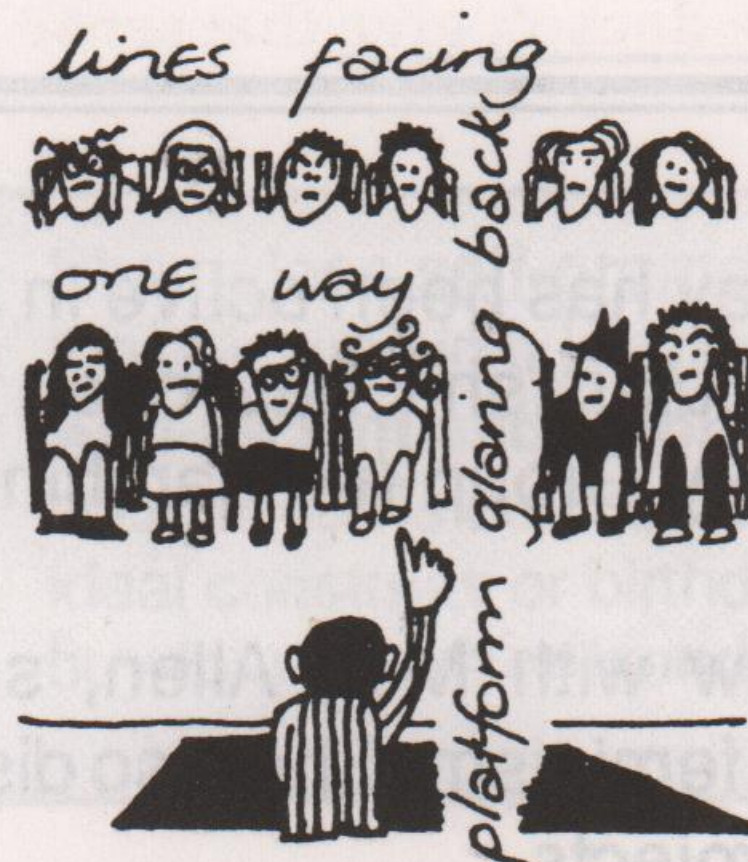 lines facing
one way
platform glaring back